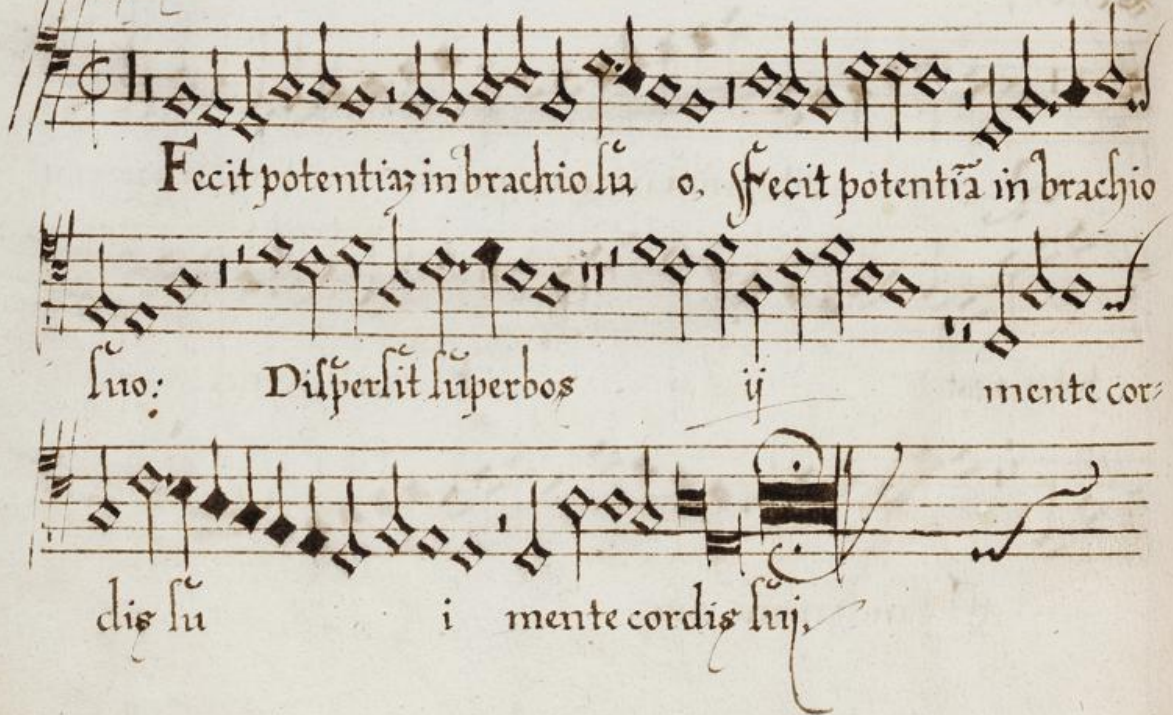 Fecit potentiaz in brachio sŭ o. Fecit potentiã in brachio
sŭo: Disp̆ersit sŭperbos ij mente cor-
dis sŭ i mente cordis sŭj.